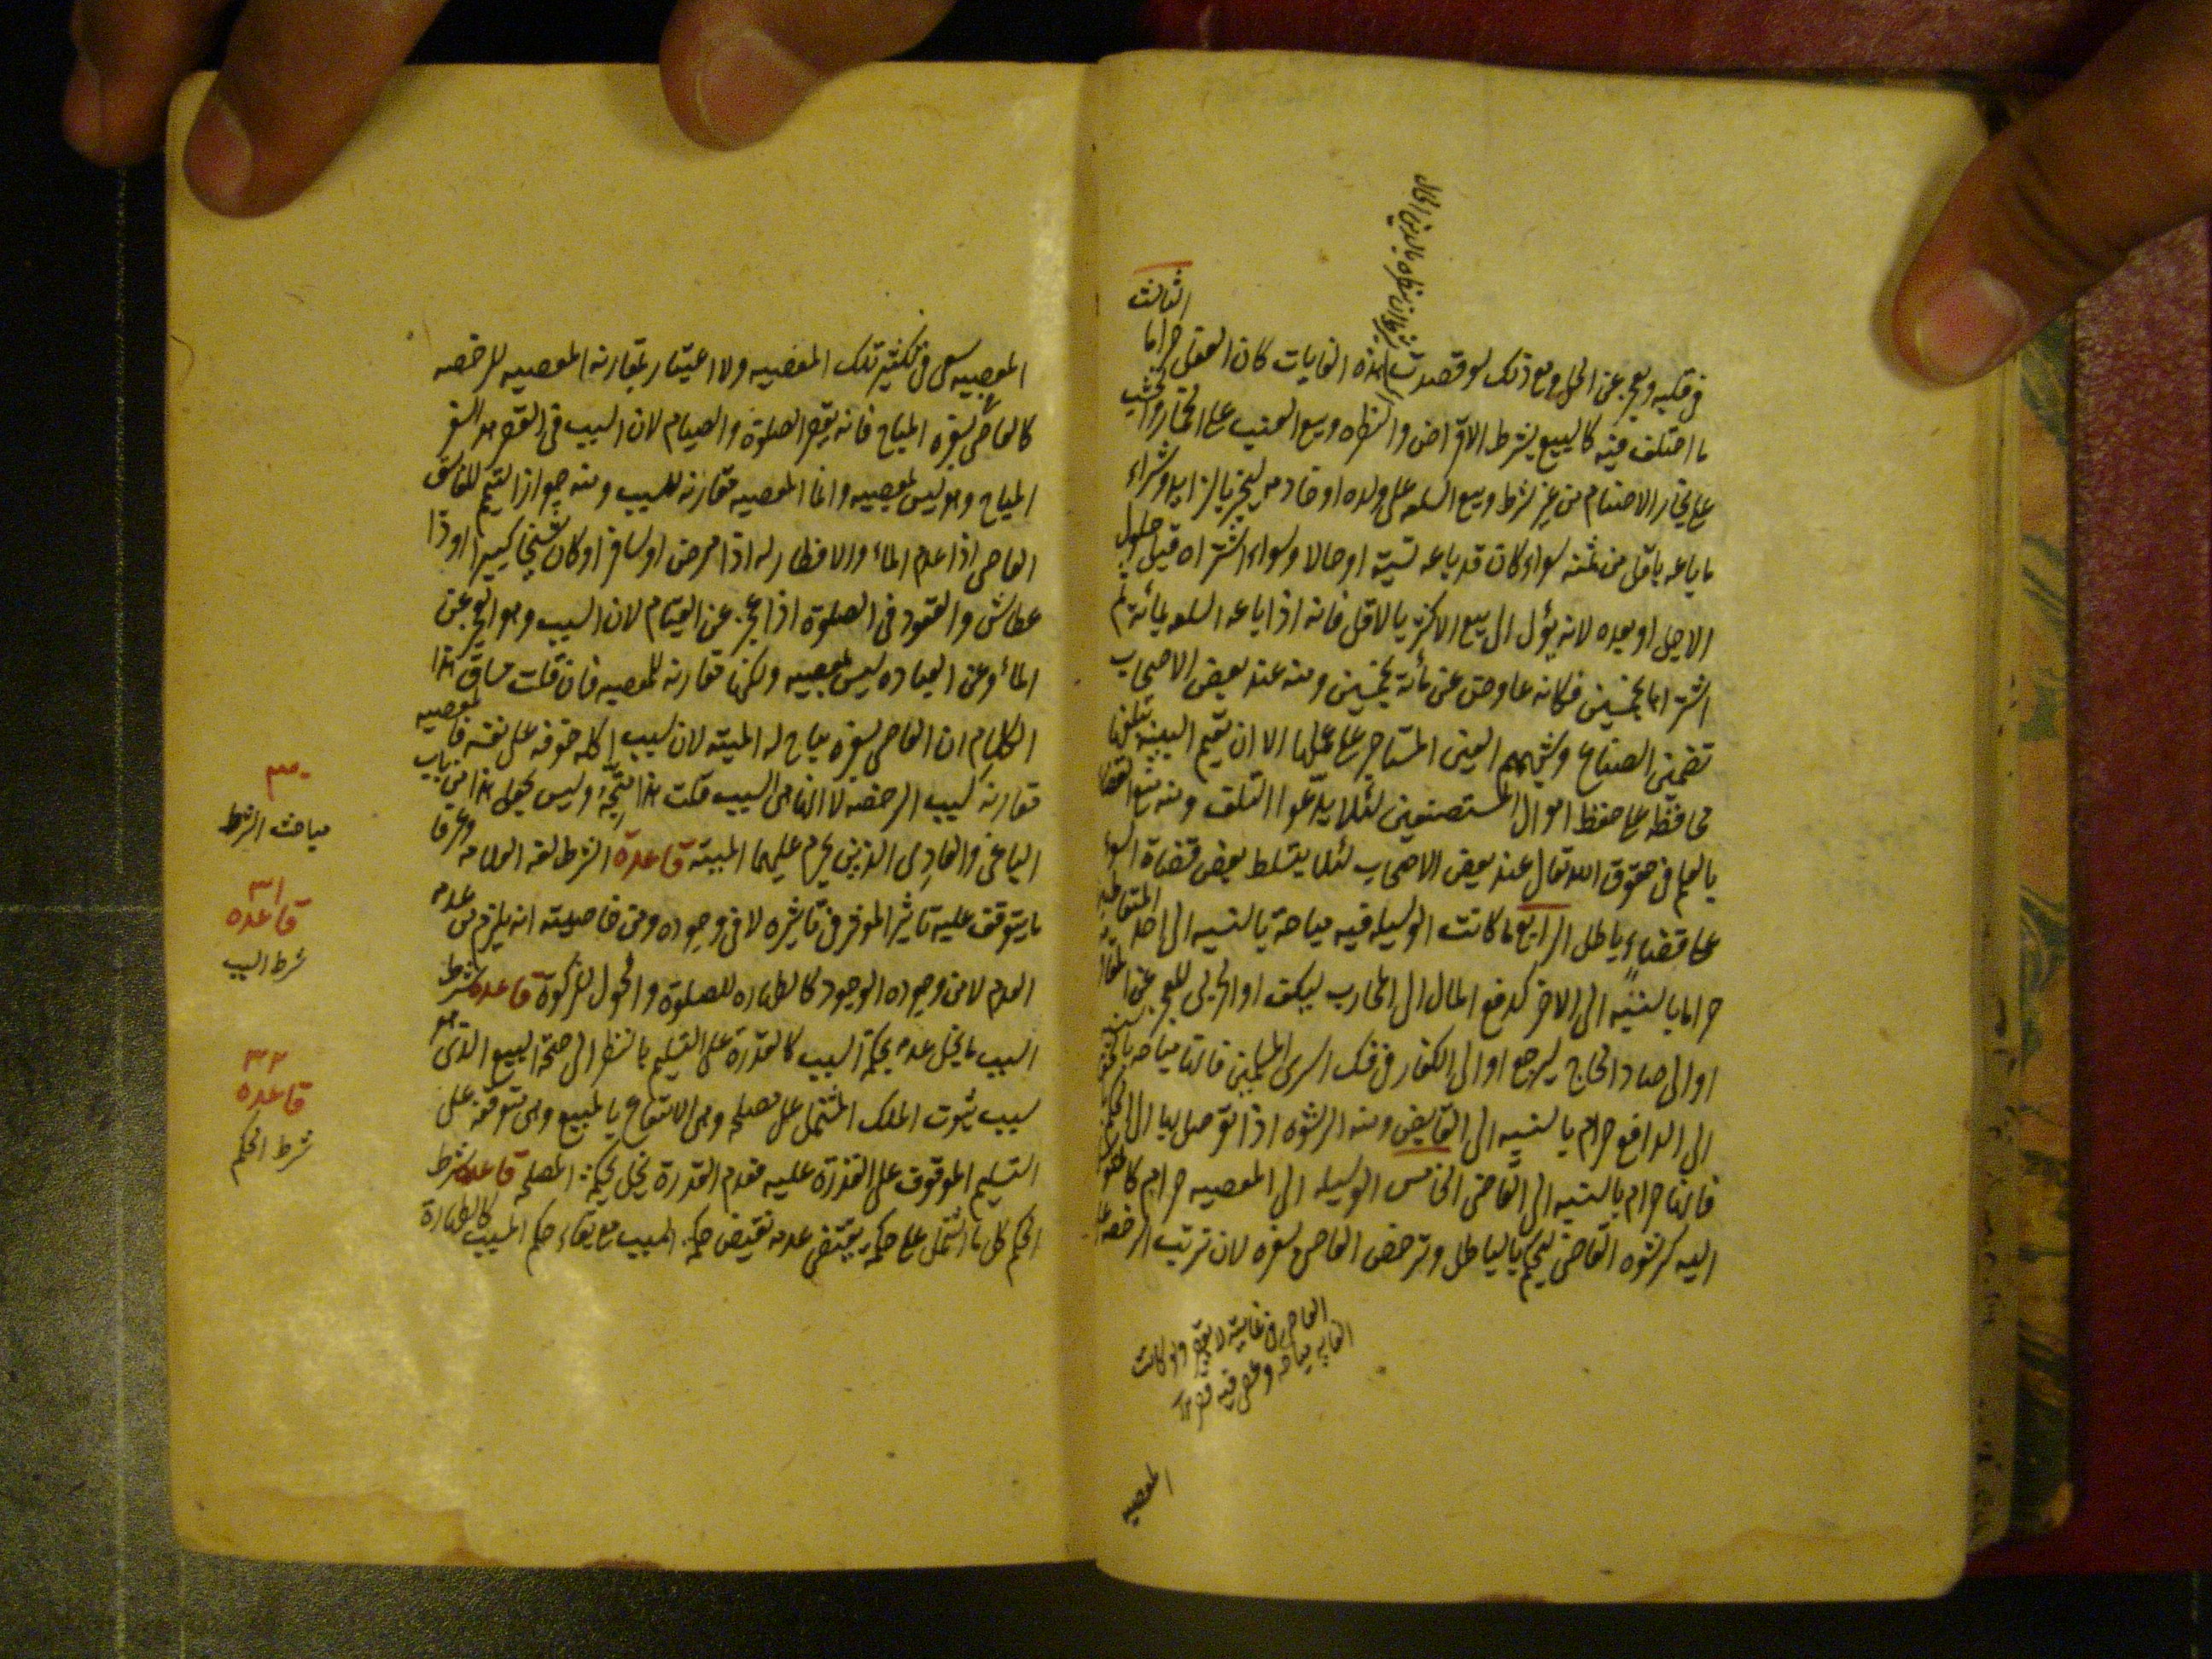 الثالث
في فكيه ويعجز عن الحل ومع ذلك لو قصدت هذه الغايات كان الفعل حراما
ما اختلف فيه كالبيع بشرط الاقراض والنظره وبيع العنب على الخمار والخشب
على نجار الاصنام من غير شرط وبيع السلعه على ولده او خادمه ليخبر بالزايد وشراء
ما باعه باقل من ثمنه سواء كان قد باعه نسيئة او حالا وسواء اشتراه قبل حلول
الاجل او بعده لانه يؤل الى بيع الاكثر بالاقل فانه اذا باعه السلعه بمائة ثم
اشتراها بخمسين فكانه عاوض عن مائة بخمسين ومنه عند بعض الاصحاب
تضمين الصناع العين المستاجر على عملها الا ان تقيم البينه بتلفها
محافظة على حفظ اموال المستصنعين لئلا يدعوا التلف ومنه منع القضاء
بالعلم في حقوق الله تعالى عند بعض الاصحاب لئلا يتسلط بعض قضاة السوء
على قضاء باطل الرابع ما كانت الوسيله فيه مباحة بالنسبه الى احد المتعاقدين
حراما بالنسبه الى الاخر كدفع المال الى المحارب ليكف او الحربي للعجز عن
او الى صاد الحاج ليرجع او الى الكفار في فك اسرى المسلمين فانها مباحه بالنسبه
الى الدافع حرام بالنسبه الى القابض ومنه الرشوه اذا توصل بها الى الحكم
فانها حرام بالنسبه الى القاضي الخامس الوسيله الى المعصيه حرام
اليه كرشوه القاضي ليحكم بالباطل وترخص العاصي بسفره لان ترتب الرخصه على
العاصي في غايته لا يقصر ولو كانت
الغايه مباحه وعصى فيه قصر
المعصيه
المعصيه سعى في تكثير تلك المعصيه ولا اعتبار بمقارنه المعصيه للرخصه
كالعاصي بسفره المباح فانه يقصر الصلوة والصيام لان السبب في القصر هو السفر
المباح وهو ليس بمعصيه وانما المعصيه مقارنه للسبب ومنه جواز التيمم للفاسق
العاصي اذا عدم الماء والافطار له اذا مرض او سافر او كان شيخا كبيرا او ذا
عطاش والقعود في الصلوة اذا عجز عن القيام لان السبب وهو العجز عن
الماء وعن العباده ليس بمعصيه ولكنها مقارنه للمعصيه فان قلت مساق هذا
الكلام ان العاصي بسفره يباح له الميته لان سبب اكله خوفه على نفسه فالمعصيه
مقارنه لسبب الرخصه لا انها هي السبب قلت هذا متجه وليس يجعل هذا من باب
الباغي والعادي الذين يحرم عليهما الميته قاعدة الشرط لغه العلامه وعرفا
ما يتوقف عليه تاثير المؤثر في تاثيره لا في وجوده ومن خاصيته انه يلزم من عدمه
العدم لا من وجوده الوجود كالطهاره للصلوة والحول للزكوة قاعده شرط
السبب ما يخل عدمه بحكمة السبب كالقدرة على التسليم بالنظر الى صحة البيع الذي هو
سبب ثبوت الملك المشتمل على مصلحه وهي الانتفاع بالمبيع وهي متوقفه على
التسليم الموقوف على القدرة عليه فعدم القدرة يخل بحكمة المصلحه قاعده شرط
الحكم كل ما اشتمل على حكمه يقتضي عدمه نقيض حكم السبب مع بقاء حكم السبب كالطهارة
٣٠
مباحث الشرط
٣١
قاعده
شرط السبب
٣٢
قاعده
شرط الحكم